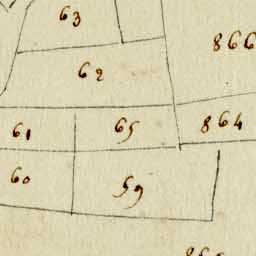 63
866
62
61
65
864
60
59